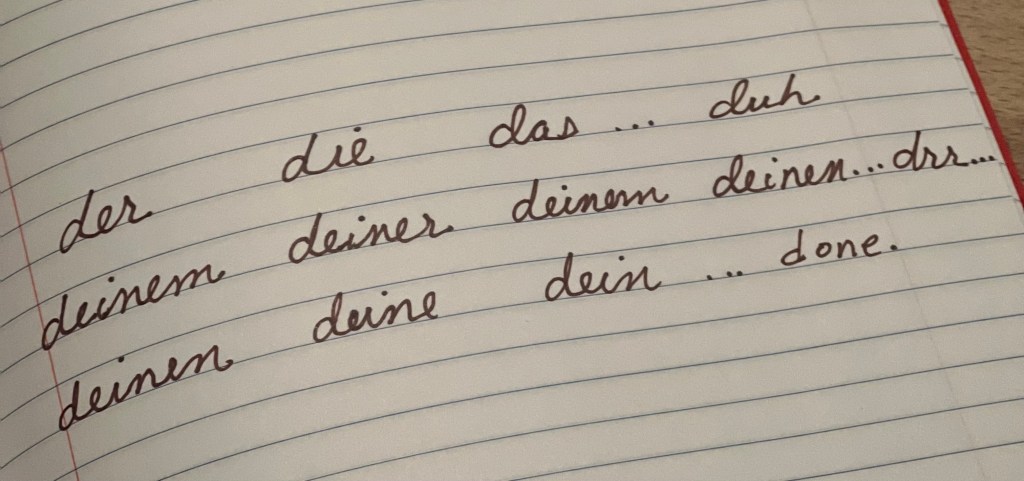 der die das ... duh
deinem deiner deinem deinen...drr...
deinen deine dein ... done.